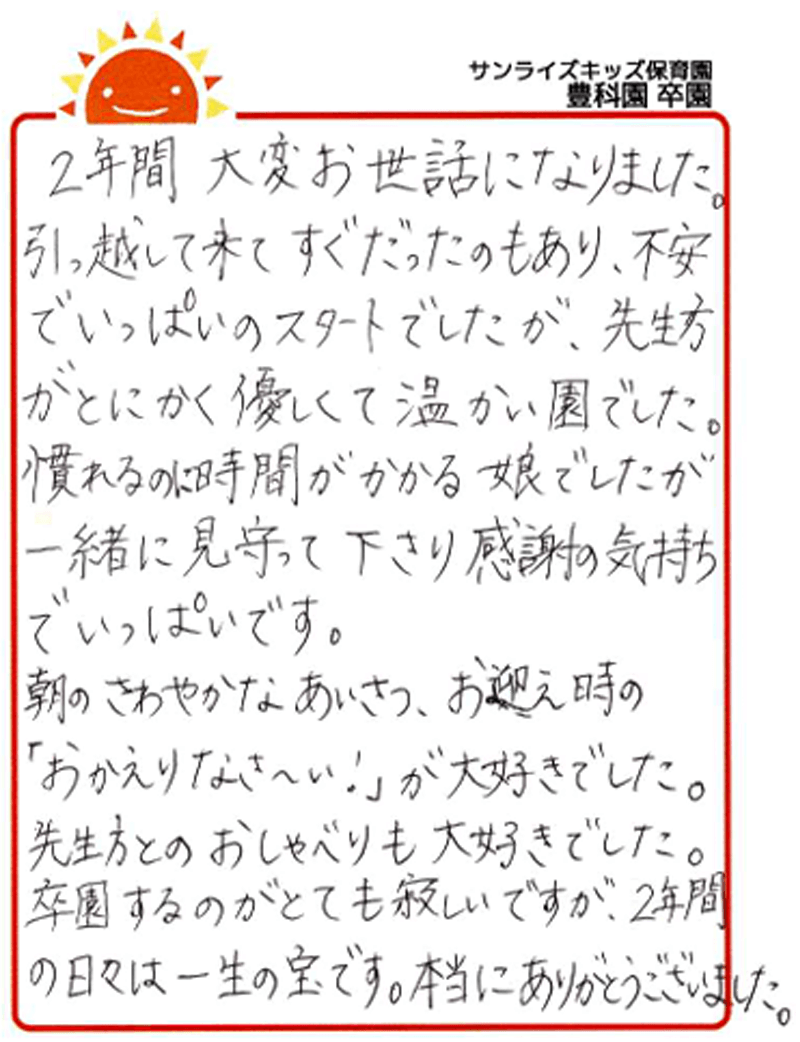 サンライズキッズ保育園
豊科園 卒園
2年間 大変お世話になりました。
引っ越して来てすぐだったのもあり、不安
でいっぱいのスタートでしたが、先生方
がとにかく優しくて温かい園でした。
慣れるのに時間がかかる娘でしたが
一緒に見守って下さり感謝の気持ち
でいっぱいです。
朝のさわやかなあいさつ、お迎え時の
「おかえりなさ〜い!」が大好きでした。
先生方とのおしゃべりも大好きでした。
卒園するのがとても寂しいですが、2年間
の日々は一生の宝です。本当にありがとうございました。